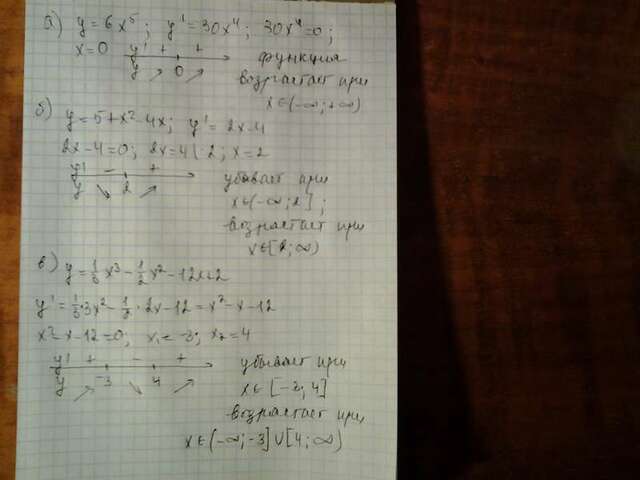 а) y = 6x⁵; y' = 30x⁴; 30x⁴ = 0;
x = 0 y' + + функция
y 0 возрастает при
x ∈ (-∞; +∞)
б) y = 5 + x² - 4x; y' = 2x - 4
2x - 4 = 0; 2x = 4 | : 2; x = 2
y' - + убывает при
y 2 x ∈ (-∞; 2];
возрастает при
x ∈ [2; ∞)
в) y = 1/3 x³ - 1/2 x² - 12x + 2
y' = 1/3 · 3x² - 1/2 · 2x - 12 = x² - x - 12
x² - x - 12 = 0; x₁ = -3; x₂ = 4
y' + - + убывает при
y -3 4 x ∈ [-3; 4]
возрастает при
x ∈ (-∞; -3] ∪ [4; ∞)